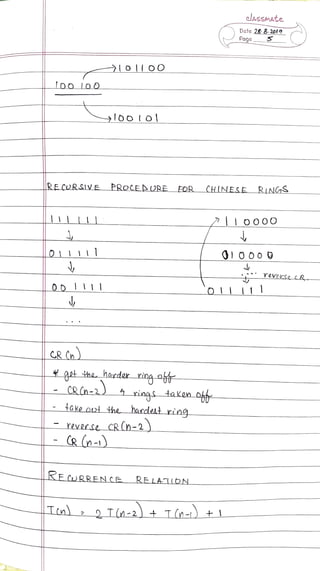 classmate
Date 28.8.2019
Page 5
→ 101100
100 100
→ 100101
RECURSIVE PROCEDURE FOR CHINESE RINGS
111111
↓
011111
↓
00 1111
↓
...
110000
↓
010000
↓ reverse CR.
011111
CR(n)
get the harder ring off
- CR(n-2) 4 rings taken off
- take out the hardest ring
- reverse CR(n-2)
- CR(n-1)
RECURRENCE RELATION
T(n) = 2T(n-2) + T(n-1) + 1